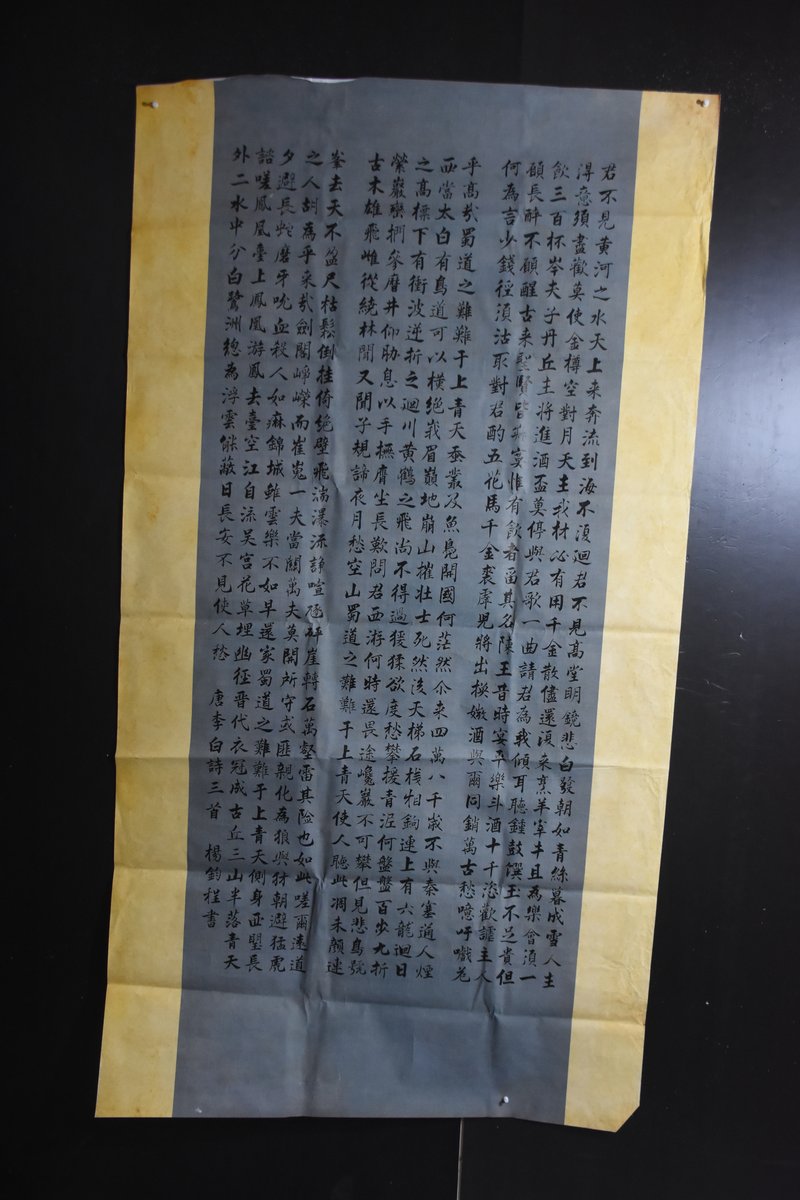 君不見黃河之水天上来奔流到海不湏迴君不見髙堂明鏡悲白發朝如青絲暮成雪人生
淂意須盡歡莫使金樽空對月天生我材必有用千金散儘還湏来烹羊宰牛且為樂會湏一
飲三百杯岑夫子丹丘生將進酒盃莫停與君歌一曲請君為我傾耳聽鐘鼓饌玉不足貴但
願長醉不願醒古来聖賢皆寂寞惟有飲者留其名陳王昔時宴平樂斗酒十千恣歡謔主人
何為言少錢径湏沽取對君酌五花馬千金裘児將出換媺酒與爾同銷萬古愁噫吁嚱危
乎髙㢤蜀道之難難于上青天蚕叢及魚鳬開國何茫然尒来四萬八千歳不與秦塞通人煙
西當太白有鳥道可以橫絶峩眉巔地崩山摧壮士死然後天梯石栈相鉤連上有六龍迴日
之髙標下有衝波逆折之迴川黃鶴之飛尚不得過猨猱欲度愁攀援青泥何盤盤百步九折
縈巖巒捫參歷井仰脅息以手撫膺坐長歎問君西游何時還畏途巉巖不可攀但見悲鳥號
古木雄飛雌從繞林間又聞子規諦夜月愁空山蜀道之難難于上青天使人聽此凋朱顏連
峯去天不盈尺枯鬆倒挂倚絶壁飛湍瀑流諍喧豗砯崖轉石萬壑雷其險也如此嗟爾遠道
之人胡為乎来㢤劍閣崢嶸而崔嵬一夫當關萬夫莫開所守或匪親化為狼與犲朝避猛虎
夕避長蛇磨牙吮血殺人如麻錦城雖雲樂不如早還家蜀道之難難于上青天側身西朢長
諮嗟鳳凰臺上鳳凰游鳳去臺空江自流吴宫花草埋幽径晉代衣冠成古丘三山半落青天
外二水中分白鷺洲總為浮雲能蔽日長安不見使人愁 唐李白詩三首 楊鈞程書